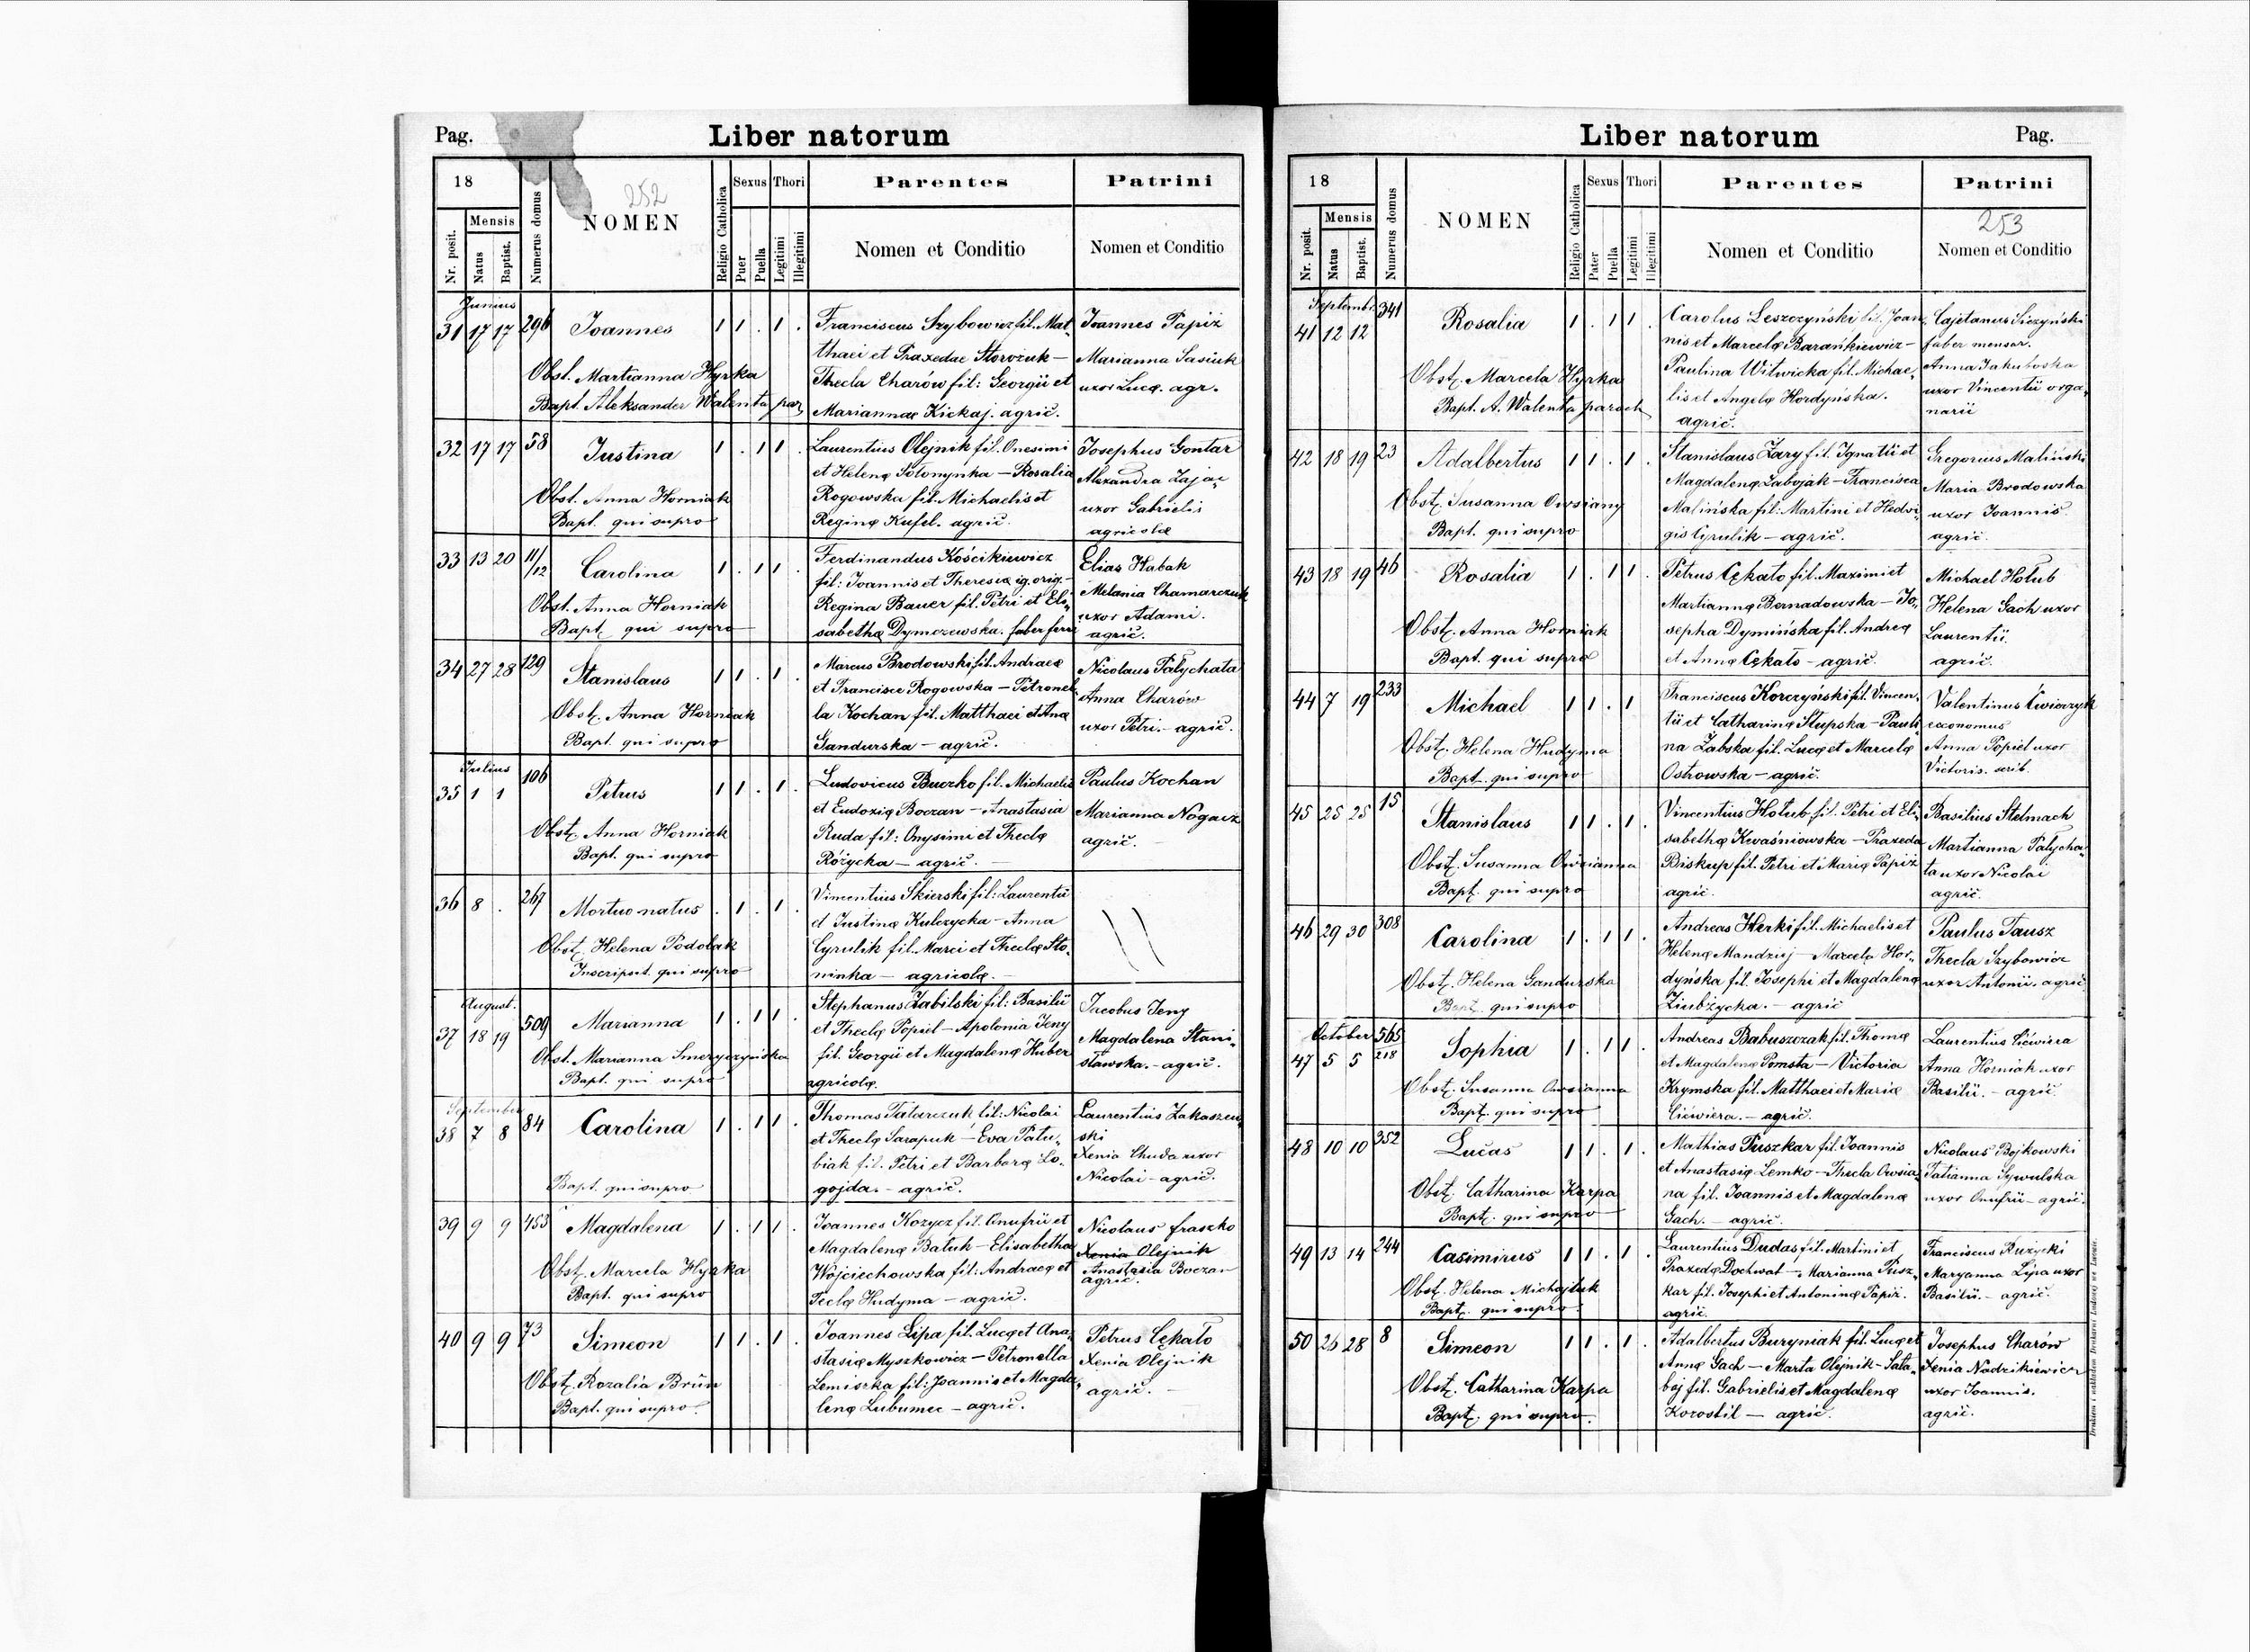 Pag.
Liber natorum
18
252
NOMEN
Mensis
Nr. posit.
Natus
Baptist.
Numerus domus
Religio Catholica
Sexus
Thori
Puer
Puella
Legitimi
Illegitimi
Parentes
Nomen et Conditio
Patrini
Nomen et Conditio
Junius
31 17 17 296 Joannes 1 1 . 1 .
Obst. Martianna Hyrka
Bapt. Aleksander Walenta par.
Franciscus Szybowicz fil. Mat-
thaei et Praxedae Storożuk —
Thecla Charów fil: Georgii et
Mariannae Kickaj. agric.
Joannes Papiż
Marianna Sasiuk
uxor Lucę. agr.
32 17 17 58 Justina 1 . 1 1 .
Obst. Anna Horniak
Bapt. qui supro
Laurentius Olejnik fil. Onesimi
et Helenę Solomynka — Rosalia
Rogowska fil. Michaelis et
Reginę Kufel. agric.
Josephus Gontar
Alexandra Zając
uxor Gabrielis
agricolae
33 13 20 11/12 Carolina 1 . 1 1 .
Obst. Anna Horniak
Bapt. qui supro
Ferdinandus Kościkiewicz
fil: Joannis et Theresię ig. orig. —
Regina Bauer fil. Petri et Eli-
sabethę Dymczewska. faber ferri
Elias Habak
Melania Chamarczuk
uxor Adami.
agric.
34 27 28 129 Stanislaus 1 1 . 1 .
Obst. Anna Horniak
Bapt. qui supro
Marcus Brodowski fil. Andraeę
et Francisce Rogowska — Petronel-
la Kochan fil. Matthaei et Anę
Gandurska — agric.
Nicolaus Patychata
Anna Charów
uxor Petri. — agric.
Julius
35 1 1 106 Petrus 1 1 . 1 .
Obst. Anna Horniak
Bapt. qui supro
Ludovicus Buczko fil. Michaelis
et Eudozię Boczan — Anastasia
Ruda fil: Onysimi et Theclę
Różycka — agric.
Paulus Kochan
Marianna Nogacz
agric.
36 8 . 267 Mortuo natus . 1 . 1 .
Obst. Helena Podolak
Inscripsit. qui supro
Vincentius Skierski fil: Laurentii
et Justinę Kulczycka — Anna
Cyrulik fil. Marci et Theclę Sto-
ninka — agricolę.
August.
37 18 19 509 Marianna 1 . 1 1 .
Obst. Marianna Smeryczyńska
Bapt. qui supro
Stephanus Zabilski fil: Basilii
et Theclę Popiel — Apolonia Jeny
fil. Georgii et Magdalenę Huber
agricolę.
Jacobus Jeny
Magdalena Stani-
sławska. — agric.
September
38 7 8 84 Carolina 1 . 1 1 .
Bapt. qui supro
Thomas Tatarczuk fil: Nicolai
et Theclę Sarapuk — Eva Patu-
biak fil. Petri et Barbarę Lo-
gojda. — agric.
Laurentius Zakaszew-
ski
Xenia Chuda uxor
Nicolai — agric.
39 9 9 453 Magdalena 1 . 1 1 .
Obst. Marcela Hyrka
Bapt. qui supro
Joannes Kozycz fil. Onufrii et
Magdalenę Batuk — Elisabetha
Wojciechowska fil: Andraeę et
Teclę Hudyma — agric.
Nicolaus Fraszko
Xenia Olejnik
Anastasia Boczan
agric.
40 9 9 73 Simeon 1 1 . 1 .
Obst. Rozalia Brün
Bapt. qui supro.
Joannes Lipa fil. Lucę et Ana-
stasię Myszkowicz — Petronella
Lemiszka fil: Joannis et Magda-
lenę Lubumec — agric.
Petrus Cękało
Xenia Olejnik
agric.
Liber natorum
Pag.
18
NOMEN
Mensis
Nr. posit.
Natus
Baptist.
Numerus domus
Religio Catholica
Sexus
Thori
Pater
Puella
Legitimi
Illegitimi
Parentes
Nomen et Conditio
Patrini
253
Nomen et Conditio
Septembr.
41 12 12 341 Rosalia 1 . 1 1 .
Obst. Marcela Hyrka
Bapt. A. Walenta paroch
Carolus Leszczyński fil. Joan-
nis et Marcelę Barańkiewicz —
Paulina Witwicka fil. Michae-
lis et Angelę Hordyńska.
agric.
Cajetanus Siczyński
faber mensar.
Anna Jakuboska
uxor Vincentii orga-
narii
42 18 19 23 Adalbertus 1 1 . 1 .
Obst. Susanna Owsiany
Bapt. qui supro
Stanislaus Zary fil. Ignatii et
Magdalenę Zabojak — Francisca
Malińska fil: Martini et Hedwi-
gis Cyrulik — agric.
Gregorius Maliński
Maria Brodowska
uxor Joannis
agric.
43 18 19 46 Rosalia 1 . 1 1 .
Obst. Anna Horniak
Bapt. qui supro
Petrus Cękało fil. Maximi et
Martiannę Bernadowska — Jo-
sepha Dymińska fil. Andreę
et Annę Cękało — agric.
Michael Hołub
Helena Gach uxor
Laurentii.
agric.
44 7 19 233 Michael 1 1 . 1
Obst. Helena Hudyma
Bapt. qui supro
Franciscus Korczyński fil. Vincen-
tii et Catharinę Słupska — Pauli-
na Zabska fil. Lucę et Marcelę
Ostrowska — agric.
Valentinus Ćwiarzyk
economus
Anna Popiel uxor
Victoris. scrib.
45 25 25 15 Stanislaus 1 1 . 1 .
Obst. Susanna Owsianna
Bapt. qui supro
Vincentius Hołub fil. Petri et Eli-
sabethę Kwaśniowska — Praxeda
Biskup fil. Petri et Marię Papiż
agric.
Basilius Stelmach
Martianna Patycha-
ta uxor Nicolai
agric.
46 29 30 308 Carolina 1 . 1 1 .
Obst. Helena Gandurska
Bapt. qui supro
Andreas Herki fil. Michaelis et
Helenę Mandzij — Marcela Hor-
dyńska fil. Josephi et Magdalenę
Ziubżycka. — agric
Paulus Tausz
Thecla Szybowicz
uxor Antonii. agric
October
47 5 5 565/218 Sophia 1 . 1 1 .
Obst. Susanna Owsianna
Bapt. qui supro
Andreas Babuszczak fil. Thomę
et Magdalenę Pomsta — Victoria
Krymska fil. Matthaei et Marię
Cićwiera. — agric.
Laurentius Cićwiera
Anna Horniak uxor
Basilii. — agric.
48 10 10 352 Lucas 1 1 . 1 .
Obst. Catharina Karpa
Bapt. qui supro
Mathias Puszkar fil. Joannis
et Anastasię Lemko — Thecla Owsia-
na fil. Joannis et Magdalenę
Gach. — agric.
Nicolaus Bojkowski
Tatianna Sywulska
uxor Onufrii — agric.
49 13 14 244 Casimirus 1 1 . 1 .
Obst. Helena Michajluk
Bapt. qui supro.
Laurentius Dudas fil. Martini et
Praxedę Dochwat — Marianna Pusz-
kar fil. Josephi et Antoninę Papiż.
agric.
Franciscus Rużycki
Maryanna Lipa uxor
Basilii. — agric.
50 26 28 8 Simeon 1 1 . 1 .
Obst. Catharina Karpa
Bapt. qui supro.
Adalbertus Buryniak fil. Lucę et
Annę Gach — Marta Olejnik — Sała-
bój fil. Gabrielis et Magdalenę
Korostil — agric.
Josephus Charów
Xenia Nadzikiewicz
uxor Joannis.
agric.